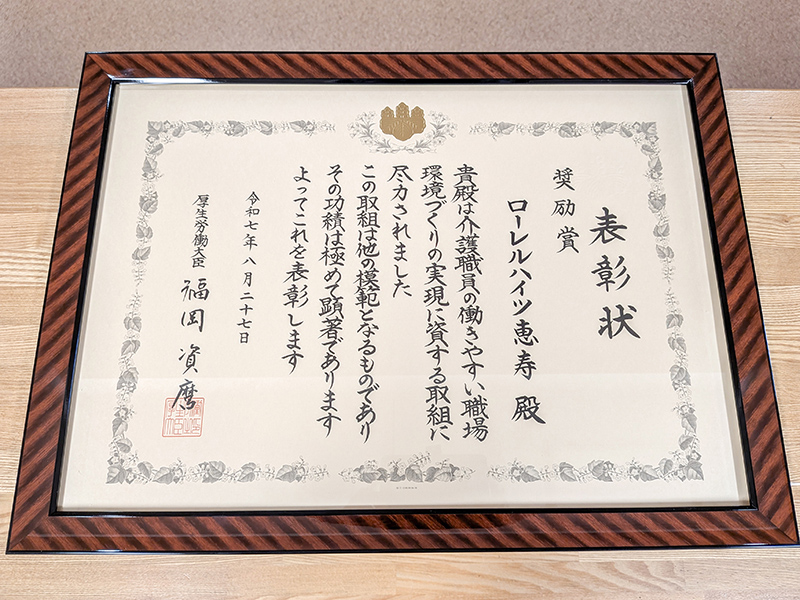 表彰状
奨励賞
ローレルハイツ恵寿 殿
貴殿は介護職員の働きやすい職場
環境づくりの実現に資する取組に
尽力されました
この取組は他の模範となるものであり
その功績は極めて顕著であります
よってこれを表彰します
令和七年八月二十七日
厚生労働大臣 福岡資麿